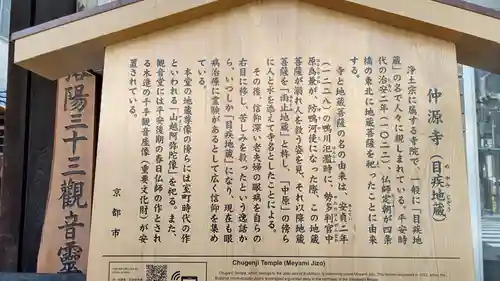 仲源寺（目疾地蔵）
ちゅうげんじ　め やみ じぞう
浄土宗に属する寺院で、一般に「目疾地
蔵」の名で人々に親しまれている。平安時
代の治安二年（一〇二二）、仏師定朝が四条
橋の東北に地蔵菩薩を祀ったことに由来
する。
寺と地蔵菩薩の名の由来は、安貞二年
（一二二八）の鴨川氾濫時に、勢多判官中
原為兼が、防鴨河使になった際、この地蔵
菩薩が溺れ人を救う姿を見、それ以降地蔵
菩薩を「雨止地蔵」と称し、「中原」の傍ら
に人と水を添えて寺名としたことによる。
その後、信仰深い老夫婦の眼病を自らの
右目に移し、苦しみを救ったという逸話か
ら、いつしか「目疾地蔵」になり、現在も眼
病治癒に霊験があるとして広く信仰を集め
ている。
本堂の地蔵尊像の傍らには室町時代の作
といわれる「山越阿弥陀像」を祀る。また、
観音堂には平安後期の春日仏師の作とされ
る木造の千手観音座像（重要文化財）が安
置されている。
京都市
洛陽三十三観音霊
Chugenji Temple (Meyami Jizo)